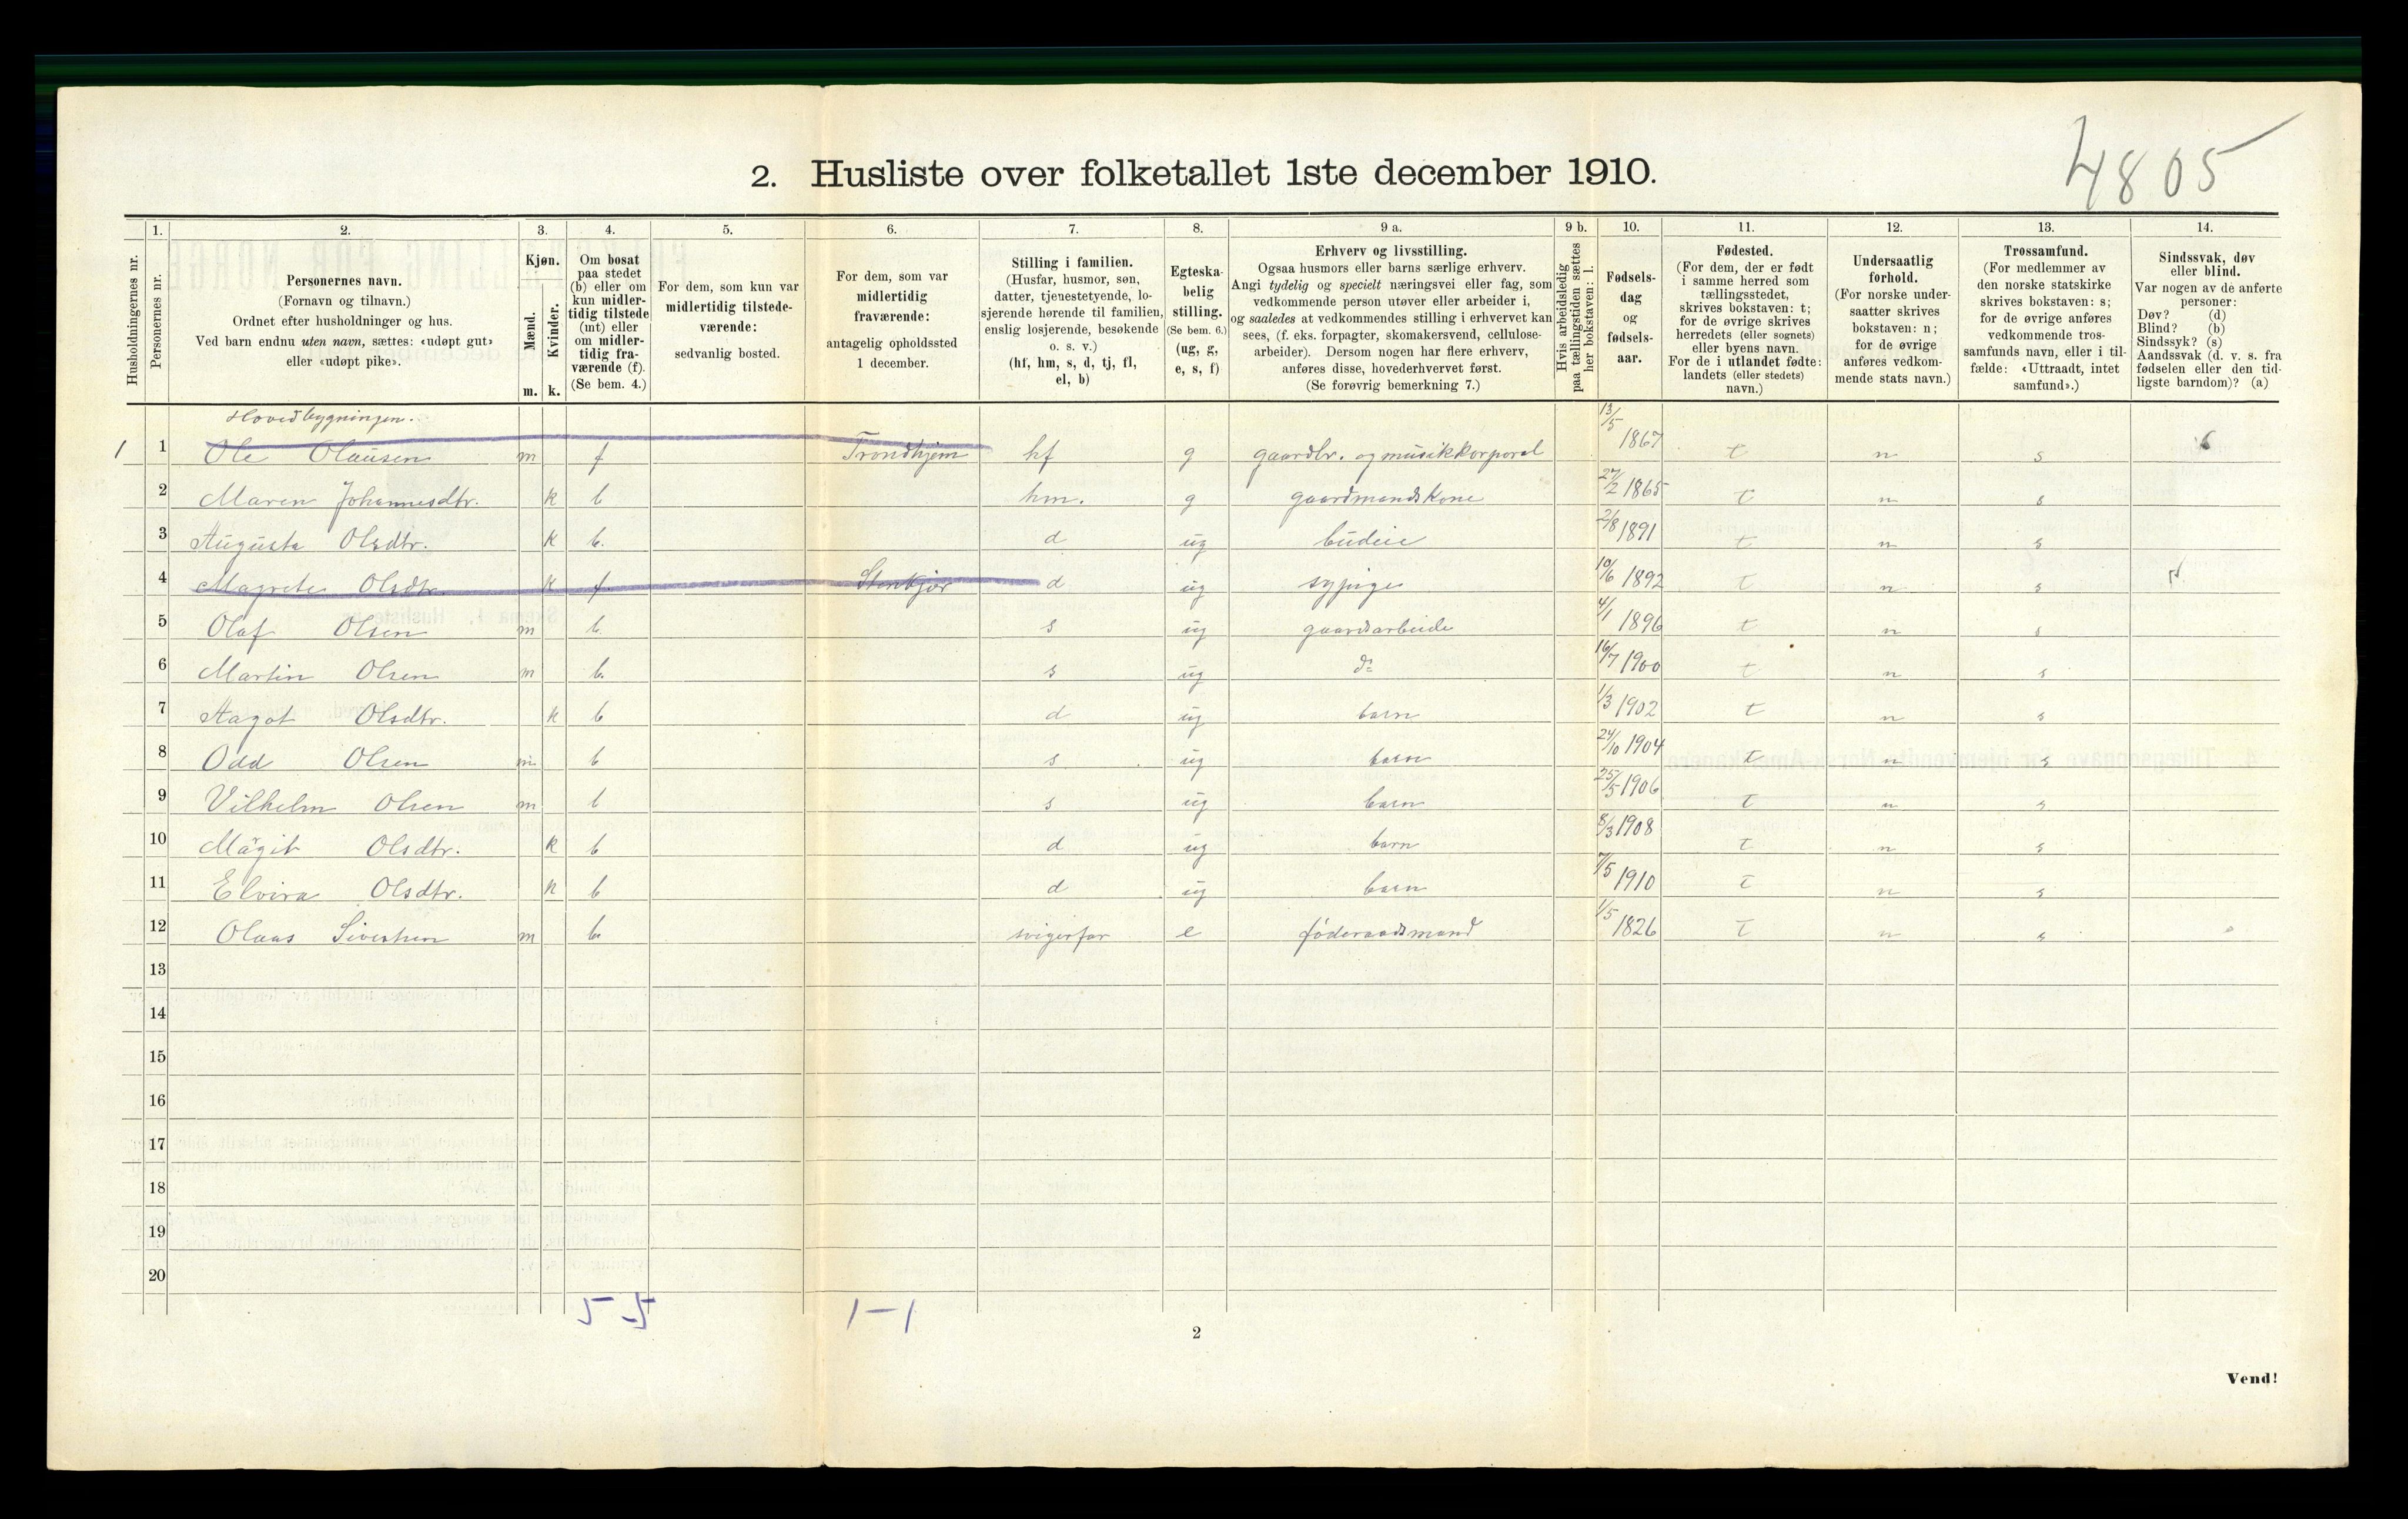 4805
2. Husliste over folketallet 1ste december 1910.
Husholdningernes nr.
1. Personernes nr.
2. Personernes navn.
(Fornavn og tilnavn.)
Ordnet efter husholdninger og hus.
Ved barn endnu uten navn, sættes: «udøpt gut»
eller «udøpt pike».
3. Kjøn.
Mænd. m.
Kvinder. k.
4. Om bosat
paa stedet
(b) eller om
kun midler-
tidig tilstede
(mt) eller
om midler-
tidig fra-
værende (f).
(Se bem. 4.)
5. For dem, som kun var
midlertidig tilstede-
værende:
sedvanlig bosted.
6. For dem, som var
midlertidig
fraværende:
antagelig opholdssted
1 december.
7. Stilling i familien.
(Husfar, husmor, søn,
datter, tjenestetyende, lo-
sjerende hørende til familien,
enslig losjerende, besøkende
o. s. v.)
(hf, hm, s, d, tj, fl,
el, b)
8. Egteska-
belig
stilling.
(Se bem. 6.)
(ug, g,
e, s, f)
9 a. Erhverv og livsstilling.
Ogsaa husmors eller barns særlige erhverv.
Angi tydelig og specielt næringsvei eller fag, som
vedkommende person utøver eller arbeider i,
og saaledes at vedkommendes stilling i erhvervet kan
sees, (f. eks. forpagter, skomakersvend, cellulose-
arbeider). Dersom nogen har flere erhverv,
anføres disse, hovederhvervet først.
(Se forøvrig bemerkning 7.)
9 b. Hvis arbeidsledig
paa tællingstiden sættes
her bokstaven: l.
10. Fødsels-
dag
og
fødsels-
aar.
11. Fødested.
(For dem, der er født
i samme herred som
tællingsstedet,
skrives bokstaven: t;
for de øvrige skrives
herredets (eller sognets)
eller byens navn.
For de i utlandet fødte:
landets (eller stedets)
navn.)
12. Undersaatlig
forhold.
(For norske under-
saatter skrives
bokstaven: n;
for de øvrige
anføres vedkom-
mende stats navn.)
13. Trossamfund.
(For medlemmer av
den norske statskirke
skrives bokstaven: s;
for de øvrige anføres
vedkommende tros-
samfunds navn, eller i til-
fælde: «Uttraadt, intet
samfund».)
14. Sindssvak, døv
eller blind.
Var nogen av de anførte
personer:
Døv? (d)
Blind? (b)
Sindssyk? (s)
Aandssvak (d. v. s. fra
fødselen eller den tid-
ligste barndom)? (a)
Hovedbygningen.
1 1 Ole Olausen m f Trondhjem hf g gaardbr. og musikkorporal 13/5 1867 t n s
2 Maren Johannesdtr. k b hm. g gaardmandskone 27/2 1865 t n s
3 Augusta Olsdtr. k b. d ug budeie 2/8 1891 t n s
4 Magrete Olsdtr. k f Stenkjær d ug sypige 10/6 1892 t n s
5 Olaf Olsen m b. s ug gaardsarbeide 4/1 1896 t n s
6 Martin Olsen m b. s ug do 16/7 1900 t n s
7 Aagot Olsdtr. k b d ug barn 1/3 1902 t n s
8 Odd Olsen m b s ug barn 24/10 1904 t n s
9 Vilhelm Olsen m b s ug barn 25/5 1906 t n s
10 Magit Olsdtr. k b d ug barn 8/3 1908 t n s
11 Elvira Olsdtr. k b d ug barn 7/5 1910 t n s
12 Olaus Sivertsen m b. svigerfar e føderaadsmand 1/5 1826 t n s
13
14
15
16
17
18
19
20
5-5 1-1
2
Vend!